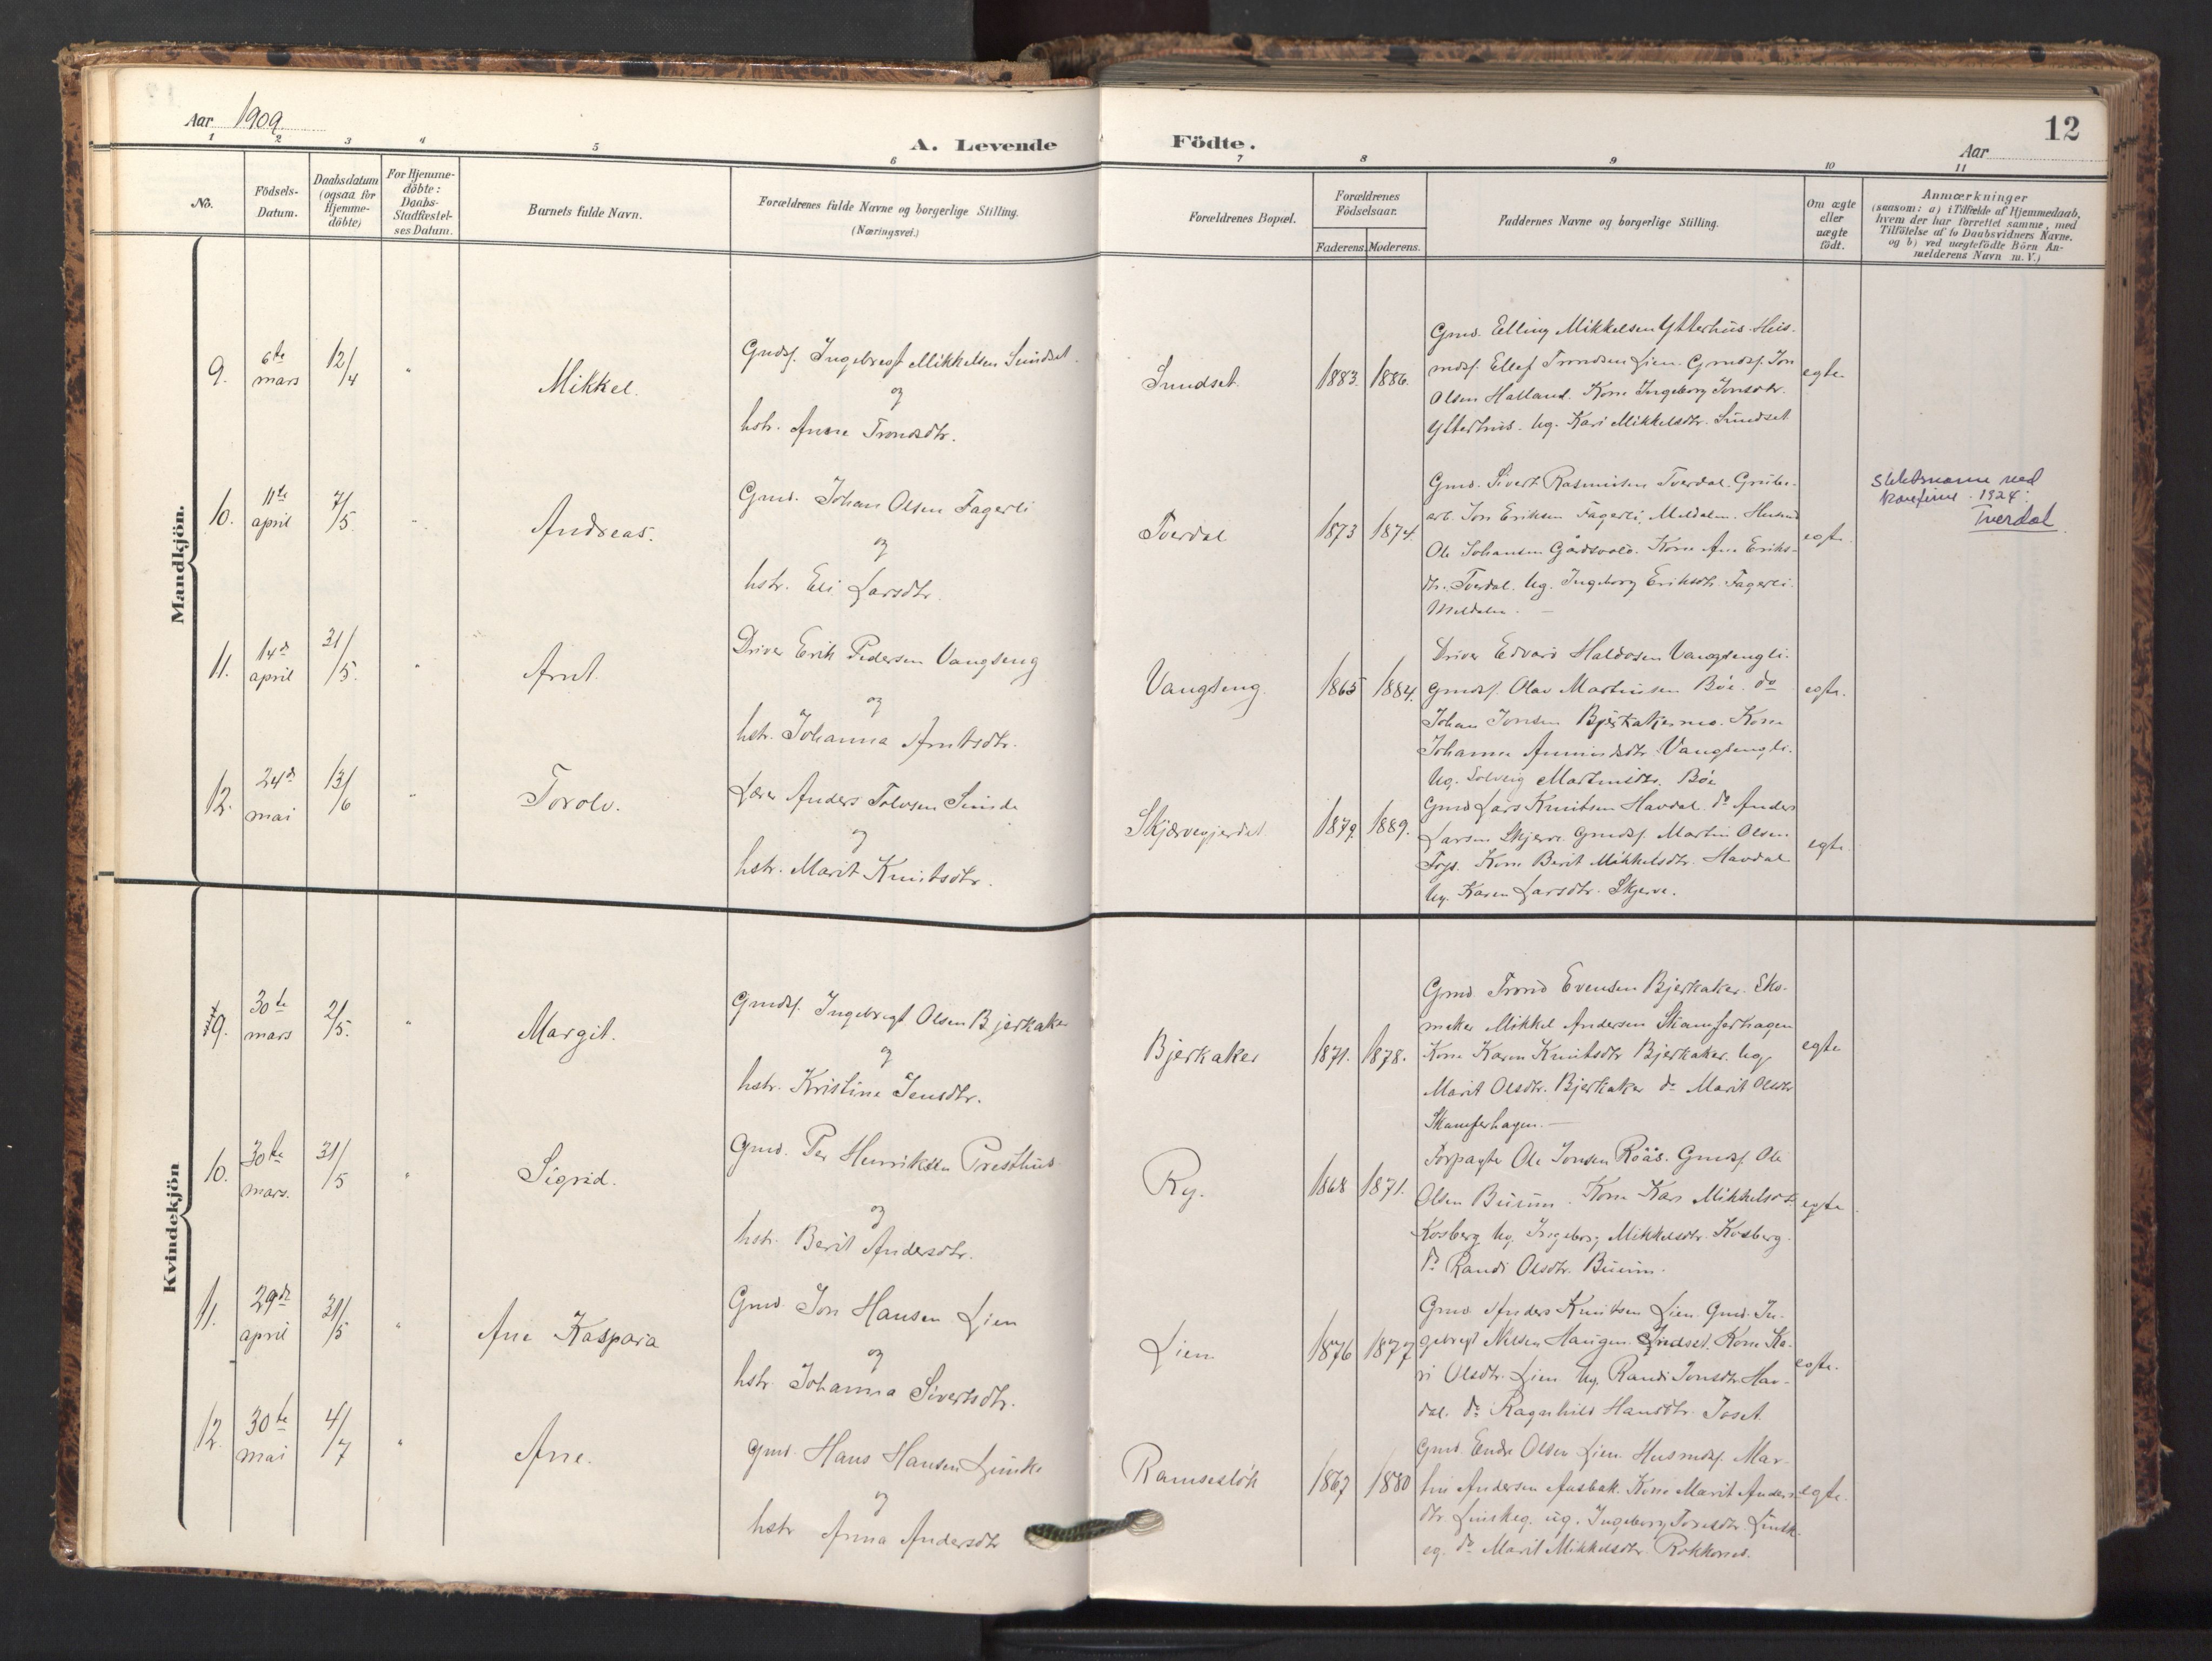 Aar 1909
A. Levende Födte.
12
Aar
1 2 3 4 5 6 7 8 9 10 11
No.
Födsels-
Datum.
Daabsdatum
(ogsaa for
Hjemme-
döbte)
For Hjemme-
döbte:
Daabs-
Stadfæstel-
ses Datum.
Barnets fulde Navn.
Forældrenes fulde Navne og borgerlige Stilling.
(Næringsvei.)
Forældrenes Bopæl.
Forældrenes
Födselsaar.
Faderens. Moderens.
Faddernes Navne og borgerlige Stilling.
Om ægte
eller
uægte
födt.
Anmærkninger
(saasom: a) i Tilfælde af Hjemmedaab,
hvem der har forrettet samme, med
Tilföielse af to Daabsvidners Navne.
og b) ved uægtefödte Börn An-
melderens Navn m. V.)
Mandkjön.
9.
6te
mars
12/4
"
Mikkel.
Gmdsf. Ingebregt Mikkelsen Sundset.
og
hstr. Anne Trondsdtr.
Sundset.
1883. 1886.
Gmd. Elling Mikkelsen Ytterhus. Hus-
mdsf. Ellef Trondsen Lien. Gmdsf. Jon
Olsen Halland. Kone Ingeborg Jonsdtr.
Ytterhus. Ug. Kari Mikkelsdtr. Sundset
egte
10.
11te
april
7/5.
"
Andreas.
Gmd. Johan Olsen Fagerli
og
hstr. Eli Larsdtr.
Tverdal
1873 1874.
Gmd. Sivert Rasmusen Tverdal. Grube-
arb. Jon Eriksen Fagerli, Meldalen. Husmd
Ole Johansen Gårdsvold. Kone Ane Eriks-
dtr. Tverdal. Ug. Ingeborg Eriksdtr. Fagerli.
Meldalen. —
egte.
Slektsnavn ved
konfirm. 1924:
Tverdal
11.
14de
april
31/5.
"
Arnt.
Driver Erik Pedersen Vangseng
og
hstr. Johanna Arntsdtr.
Vangseng.
1865 1884.
Driver Edvard Haldosen Vangsengli.
Gmdsf. Olav Martinsen Böe. do
Johan Jonsen Bjerkakernes. Kone
Johanne Amundsdtr. Vangsengli.
Ug. Solveig Martinsdtr. Böe
egte.
12.
24de
mai
13/6
"
Torolv.
Lærer Anders Tolvsen Sunde
og
hstr. Marit Knutsdtr.
Skjærvegjerdet
1879. 1889.
Gmd Lars Knutsen Havdal. do Anders
Larsen Skjerve. Gmdsf. Martin Olsen
Kone Berit Mikkelsdtr. Havdal
Ug. Karen Larsdtr. Skjerve.
egte.
Kvindekjön
9.
30te
mars
2/5.
"
Margit.
Gmdsf. Ingebregt Olsen Bjerkaker
og
hstr. Kristine Jensdtr.
Bjerkaker
1871. 1878.
Gmd. Trond Evensen Bjerkaker. Sko-
maker Mikkel Andersen Skamferhagen
Kone Karen Knutsdtr Bjerkaker. Ug
Marit Olsdtr. Bjerkaker do Marit Olsdtr
Skamferhagen. —
egte
10.
30te
mars.
31/5
"
Sigrid.
Gmd. Per Henriksen Presthus
og
hstr. Berit Andersdtr.
Ry.
1868 1871.
Forpagter Ole Jonsen Röås. Gmdsf. Ole
Olsen Buum. Kone Kari Mikkelsdtr.
Kosberg. Ug. Ingeborg Mikkelsdtr. Kosberg.
do Randi Olsdtr. Buum.
egte.
11.
29de
april
31/5
"
Ane Kaspara
Gmd. Jon Hansen Lien
og
hstr. Johanna Sivertsdtr.
Lien
1876 1877
Gmd. Anders Knutsen Lien. Gmd. In-
gebregt Nilsen Haugen Kone Ka-
ri Olsdtr. Lien Ug. Randi Jonsdtr. Hav-
dal. do Ragnhild Hansdtr. Joset
egte.
12.
30te
mai
4/7
"
Ane.
Gmd. Hans Hansen
og
hstr Anna Andersdtr
Ramseslök
1867 1880
Gmd. Endre Olsen Lien. Husmdsf. Mar-
tin Andersen Aasbak. Kone Marit Anders-
dtr. ug. Ingeborg
do Marit Mikkelsdtr.
egte.